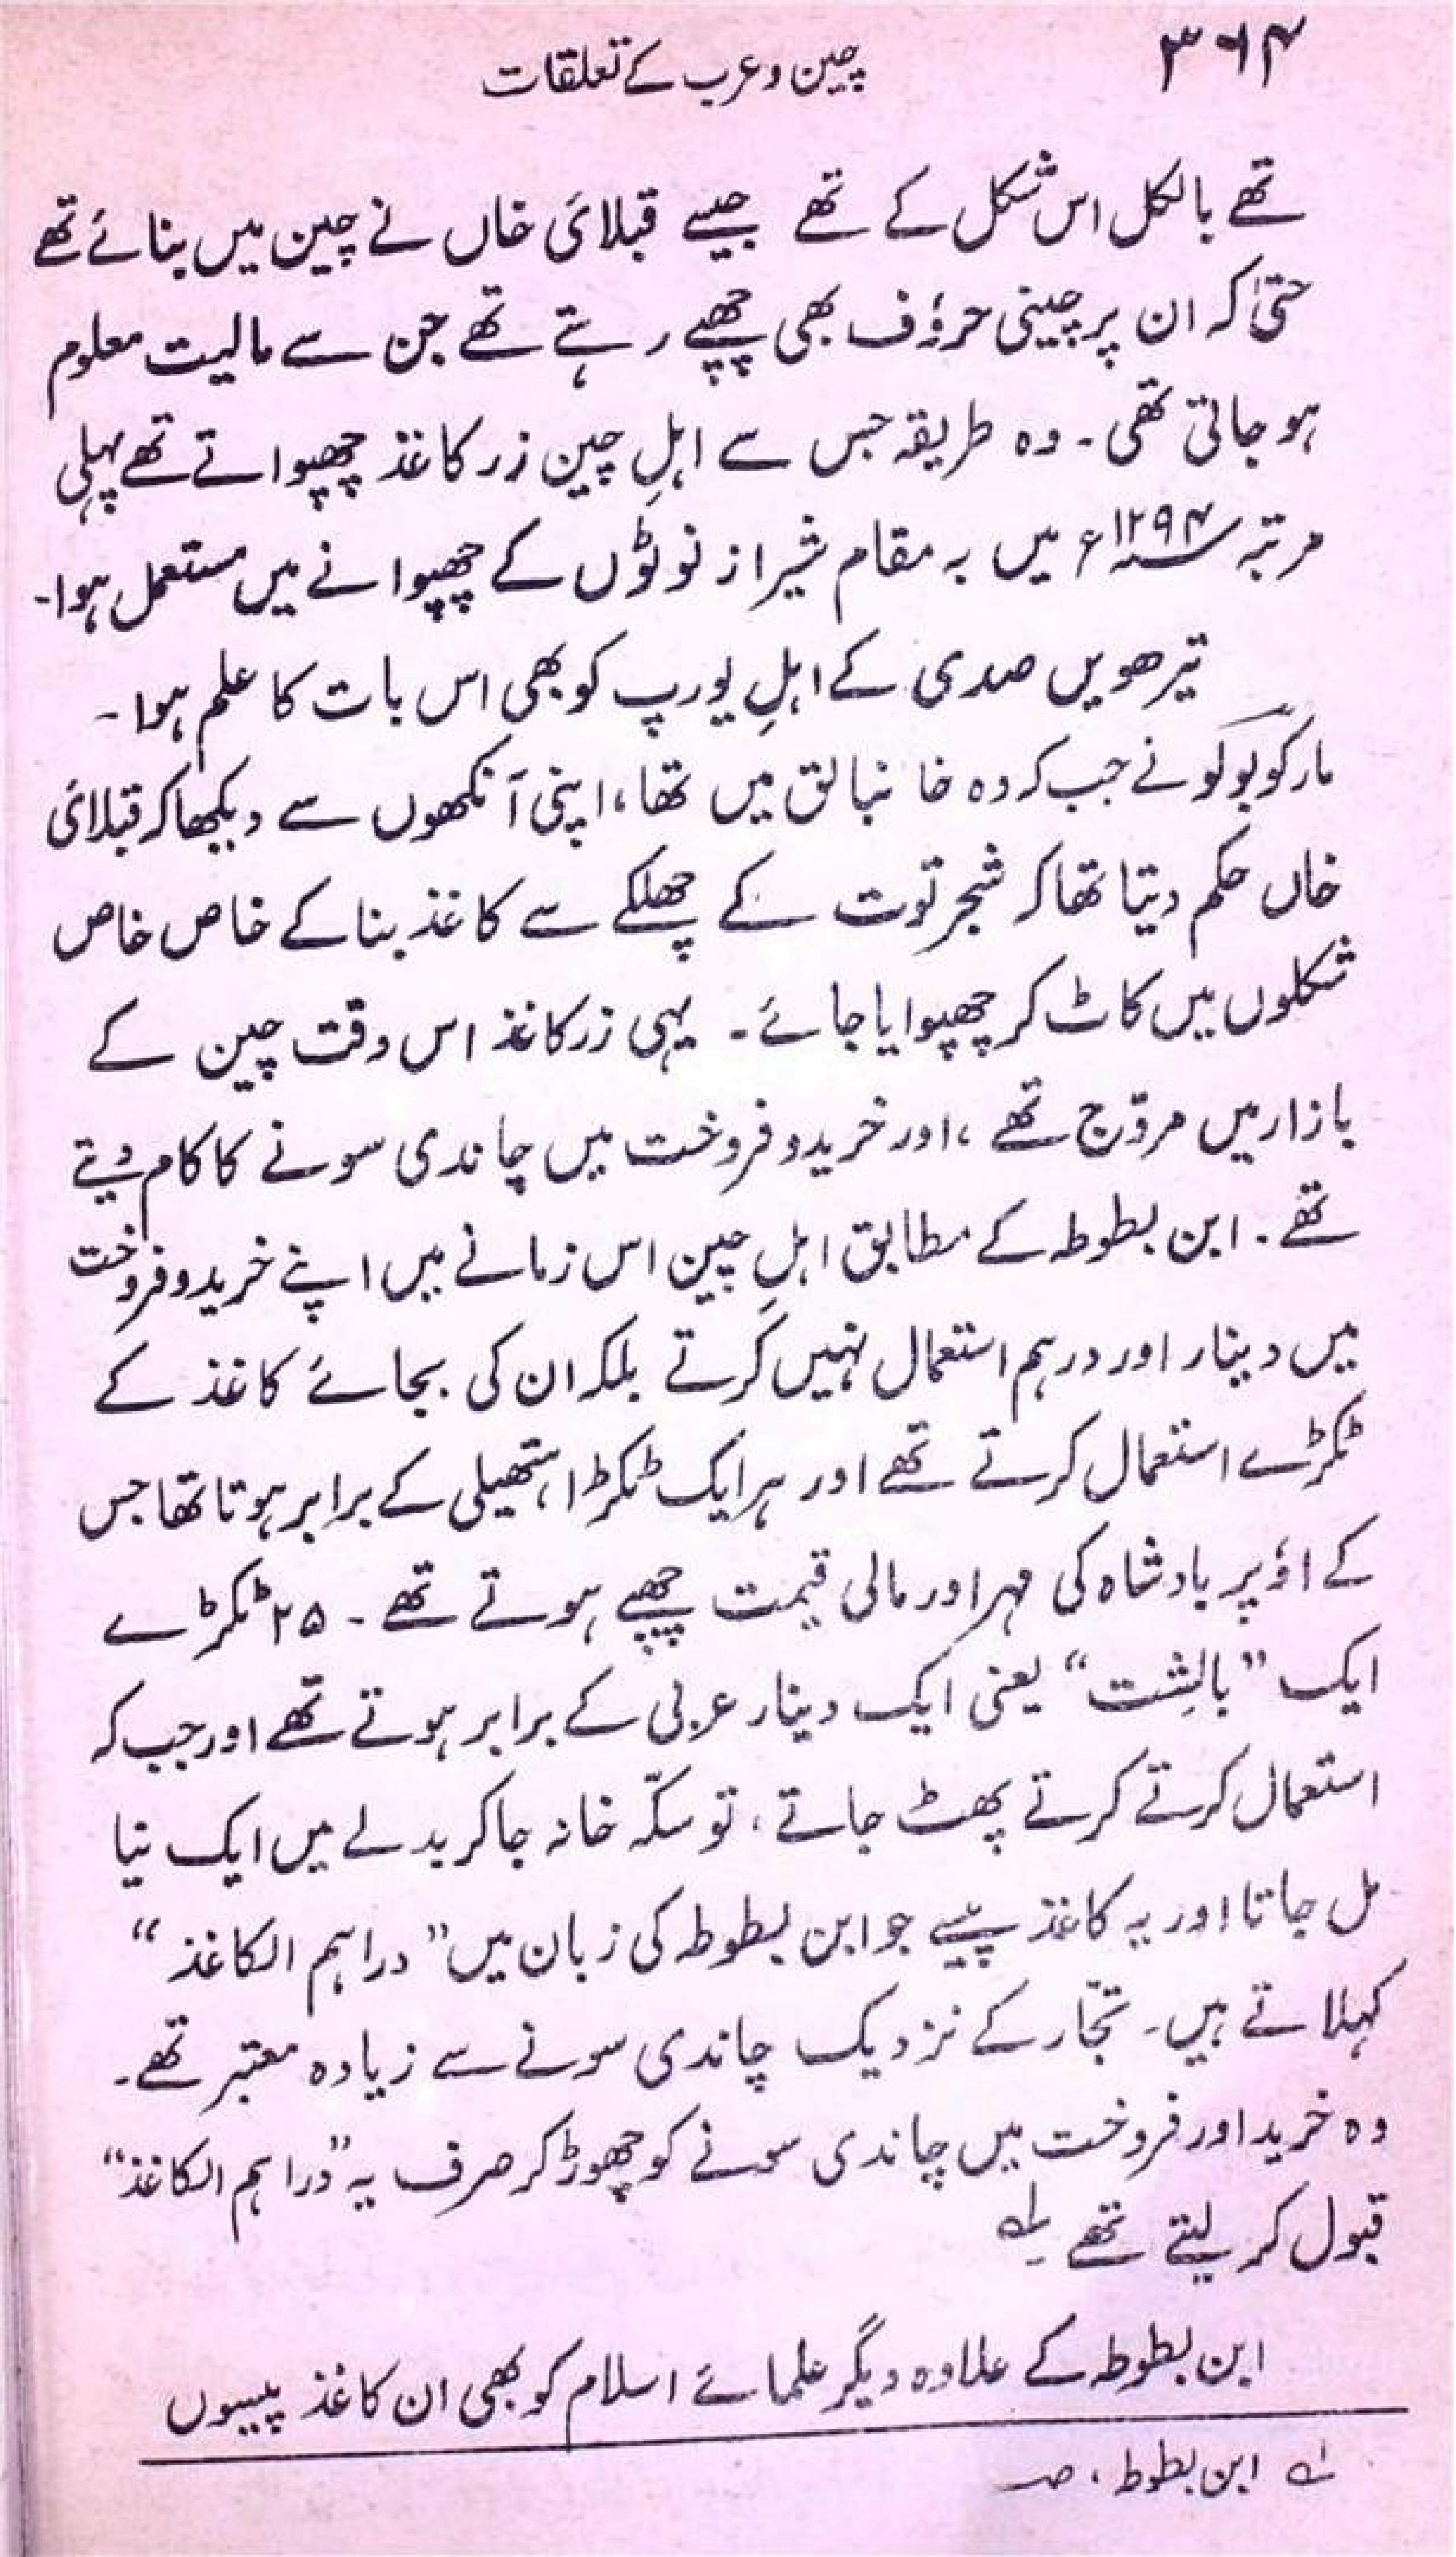 ۳۶۴
چین و عرب کے تعلقات
تھے بالکل اس شکل کے تھے جیسے قبلائی خاں نے چین میں بنائے تھے
حتیٰ کہ ان پر چینی حروُف بھی چھپے رہتے تھے جن سے مالیت معلوم
ہو جاتی تھی۔ وہ طریقہ جس سے اہلِ چین زر کاغذ چھپواتے تھے پہلی
مرتبہ ۱۲۹۴؁ء میں بہ مقام شیراز نوٹوں کے چھپوانے میں مستعمل ہوا۔
تیرھویں صدی کے اہلِ یورپ کو بھی اس بات کا علم ہوا۔
مارکوپولو نے جب کہ وہ خانبالق میں تھا، اپنی آنکھوں سے دیکھا کہ قبلائی
خاں حکم دیتا تھا کہ شجر توت کے چھلکے سے کاغذ بنا کے خاص خاص
شکلوں میں کاٹ کر چھپوایا جائے۔ یہی زر کاغذ اس وقت چین کے
بازار میں مروّج تھے، اور خرید و فروخت میں چاندی سونے کا کام دیتے
تھے۔ ابن بطوطہ کے مطابق اہلِ چین اس زمانے میں اپنے خرید و فروخت
میں دینار اور درہم استعمال نہیں کرتے بلکہ ان کی بجائے کاغذ کے
ٹکڑے استعمال کرتے تھے اور ہر ایک ٹکڑا ہتھیلی کے برابر ہوتا تھا جس
کے اوُپر بادشاہ کی مہر اور مالی قیمت چھپے ہوتے تھے۔ ۲۵ ٹکڑے
ایک ”بالِشت“ یعنی ایک دینار عربی کے برابر ہوتے تھے اور جب کہ
استعمال کرتے کرتے پھٹ جاتے، تو سکّہ خانہ جا کر بدلے میں ایک نیا
مل جاتا اور یہ کاغذ پیسے جو ابن بطوطہ کی زبان میں ”دراہم الکاغذ“
کہلاتے ہیں۔ تجّار کے نزدیک چاندی سونے سے زیادہ معتبر تھے۔
وہ خرید اور فروخت میں چاندی سونے کو چھوڑ کر صرف یہ ”دراہم الکاغذ“
قبول کر لیتے تھے لہ
ابن بطوطہ کے علاوہ دیگر علمائے اسلام کو بھی ان کاغذ پیسوں
لہ ابن بطوط، صـ